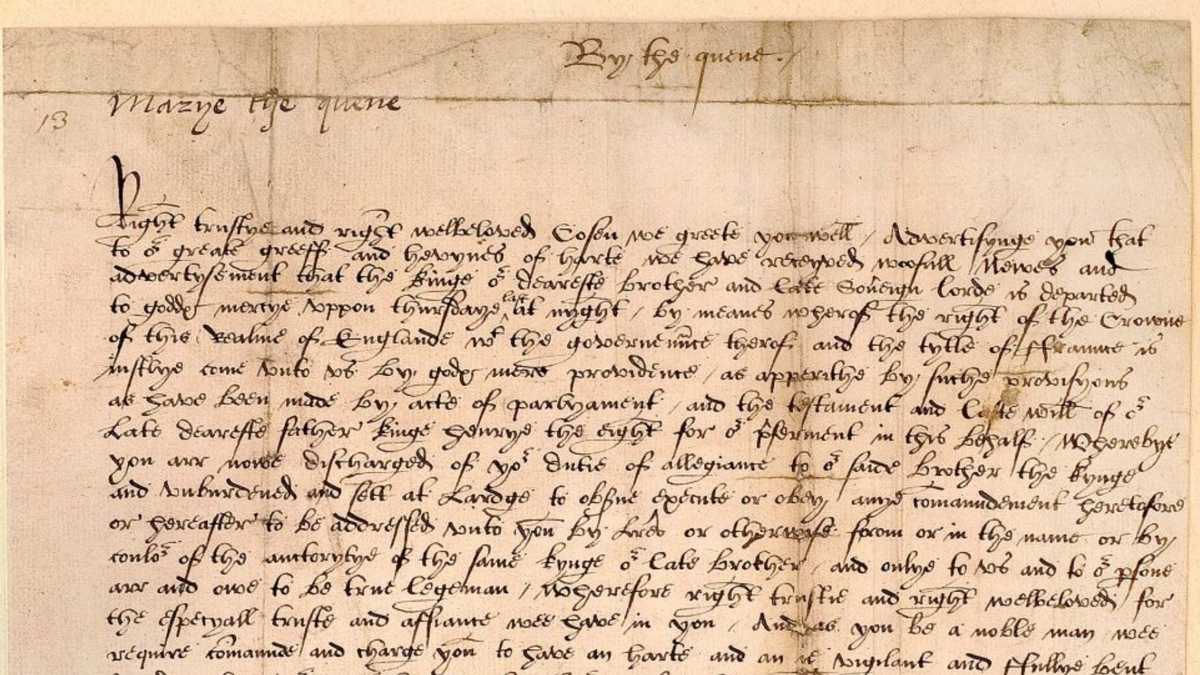 By the quene /
Marye the quene
13
Right trustye and right welbeloved Cosen we greete you well / Advertisynge you that
to or greate greeff and hevynes of harte we have receyved woofull Newes and
advertysement that the kinge or deareste brother and late Soveign lorde is departed
to godds mercye uppon thursdaye last at nyght / by meanes wherof the right of the Crowne
of this Realme of Englande wt the governemnce therof and the tytle of ffrannce is
iustlye come unto us by godds mere providence / as apperithe by suche provisyons
as have been made by acte of parlyament / and the testament and laste will of or
late deareste father kinge henrye the eight for or pferment in this behalf / Wherebye
you arr nowe discharged of yor dutie of allegiance to or saide brother the kynge
and unburdened and sett at Lardge to obsrue execute or obey anye comaundement heretofore
or hereafter to be addressed unto you by lres or otherwyse from or in the name or by
coulor of the auctorytye of the same kynge or late brother / and onlye to us and to or psone
arr and owe to be true legeman / wherefore right trustie and right welbeloved for
the especyall truste and affiance wee have in you / And as you be a noble man wee
require comaunde and charge you to have an harte and an vigilant and ffullye bent